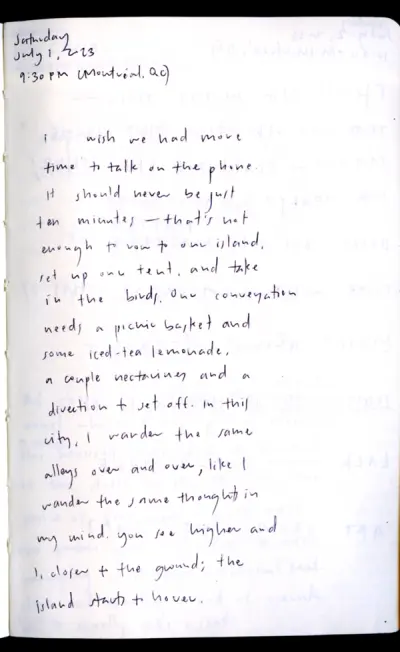 Saturday
July 1, 2023
9:30 PM (Montréal, QC)
I wish we had more
time to talk on the phone.
It should never be just
ten minutes — that's not
enough to row to our island,
set up our tent, and take
in the birds. Our conversation
needs a picnic basket and
some iced-tea lemonade,
a couple nectarines and a
direction to set off. In this
city, I wander the same
alleys over and over, like I
wander the same thoughts in
my mind. You see higher and
I, closer to the ground; the
island starts to hover.